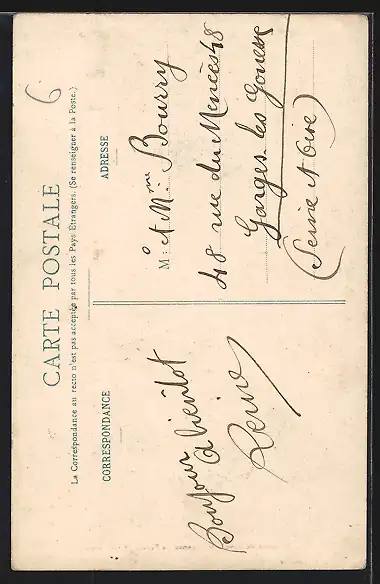 6
CARTE POSTALE
La Correspondance au recto n'est pas acceptée par tous les Pays Etrangers. (Se renseigner à la Poste.)
CORRESPONDANCE
Bonjour
A bientôt
Reine
ADRESSE
M. et Mme Bourry
48 rue du 48
Garges les Gonesse
(Seine et Oise)